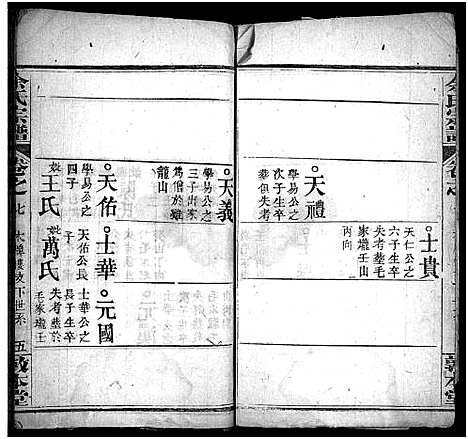 士貴
天仁公之
六子生卒
失考墓毛
家壠壬山
丙向
天禮
學易公之
次子生卒
葬俱失考
天義
學易公之
三子出家
為僧於雞
龍山
天佑
學易公之
四子
妣王氏
士華
天佑公長
子
妣萬氏
元國
士華公之
長子生卒
失考墓於
毛家壠壬
余氏宗譜
卷之七
五